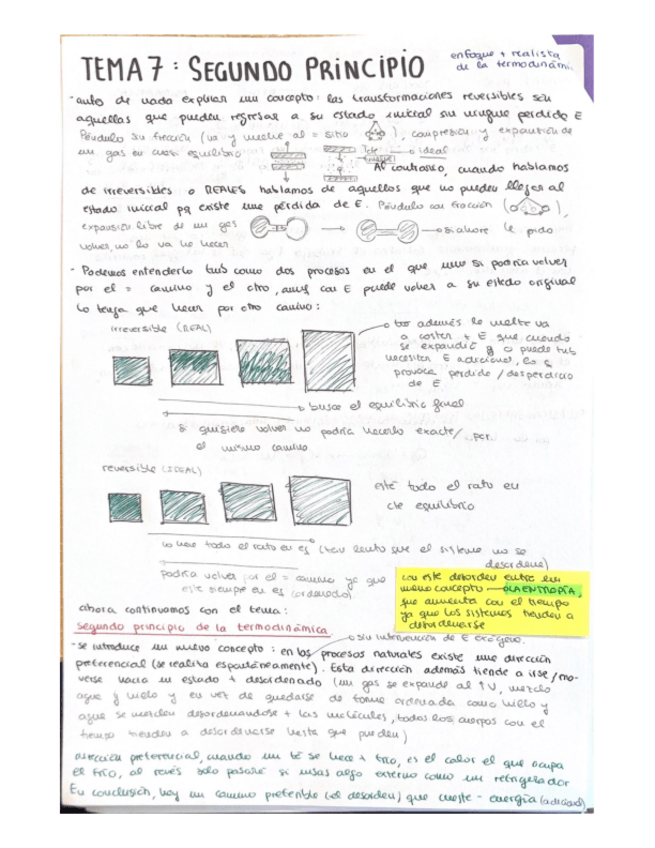 TEMA 7: SEGUNDO PRINCIPIO
enfoque + realista
de la termodinámi
- antes de nada explicar un concepto: las transformaciones reversibles son
aquellas que pueden regresar a su estado inicial sin ningune perdida E
Péndulo sin fricción (va y vuelve al = sitio), compresión y expansión de
un gas en cuasi equilibrio
→ ideal
Al contrario, cuando hablamos
de irreversibles o REALES hablamos de aquellos que no pueden llegar al
estado inicial pq existe una pérdida de E. Péndulo con fracción (),
expansión libre de un gas
→ si ahora le pido
volver, no lo va ha hacer
- Podemos entenderlo tmb como dos procesos en el que uno si podría volver
por el = camino y el otro, aunq con E puede volver a su estado original
lo tenga que hacer por otro camino:
irreversible (REAL)
además la vuelta va
a costar + E que cuando
se expandió y puede tmb
necesitar E adicional,
provoca perdida / desperdicio
de E
→ busca el equilibrio final
si quisiera volver no podría hacerlo exacte/ por
el mismo camino
reversible (IDEAL)
está todo el rato en
de equilibrio
lo hace todo el rato en eq (tan lento que el sistema no se
desordene)
podría volver por el = camino ya que
este siempre en eq (ordenado)
con este desorden entra un
nuevo concepto → LA ENTROPÍA,
que aumenta con el tiempo
ya que los sistemas tienden a
desordenarse
ahora continuamos con el tema:
segundo principio de la termodinámica
→ sin intervención de E exógena.
- se introduce un nuevo concepto: en los procesos naturales existe una dirección
preferencial (se realiza espontáneamente). Esta dirección además tiende a irse/mo-
verse hacia un estado + desordenado (un gas se expande al ↑V, mezclo
agua y hielo y en vez de quedarse de forma ordenada como hielo y
agua se mezclan desordenandose + las moléculas, todos los cuerpos con el
tiempo tienden a desordenarse hasta que pueden)
dirección preferencial, cuando un té se hace + frio, es el calor el que ocupa
el frío, al revés solo pasará si usas algo externo como un refrigerador
En conclusión, hay un camino preferible (el desorden) que cueste - energía (adicional)